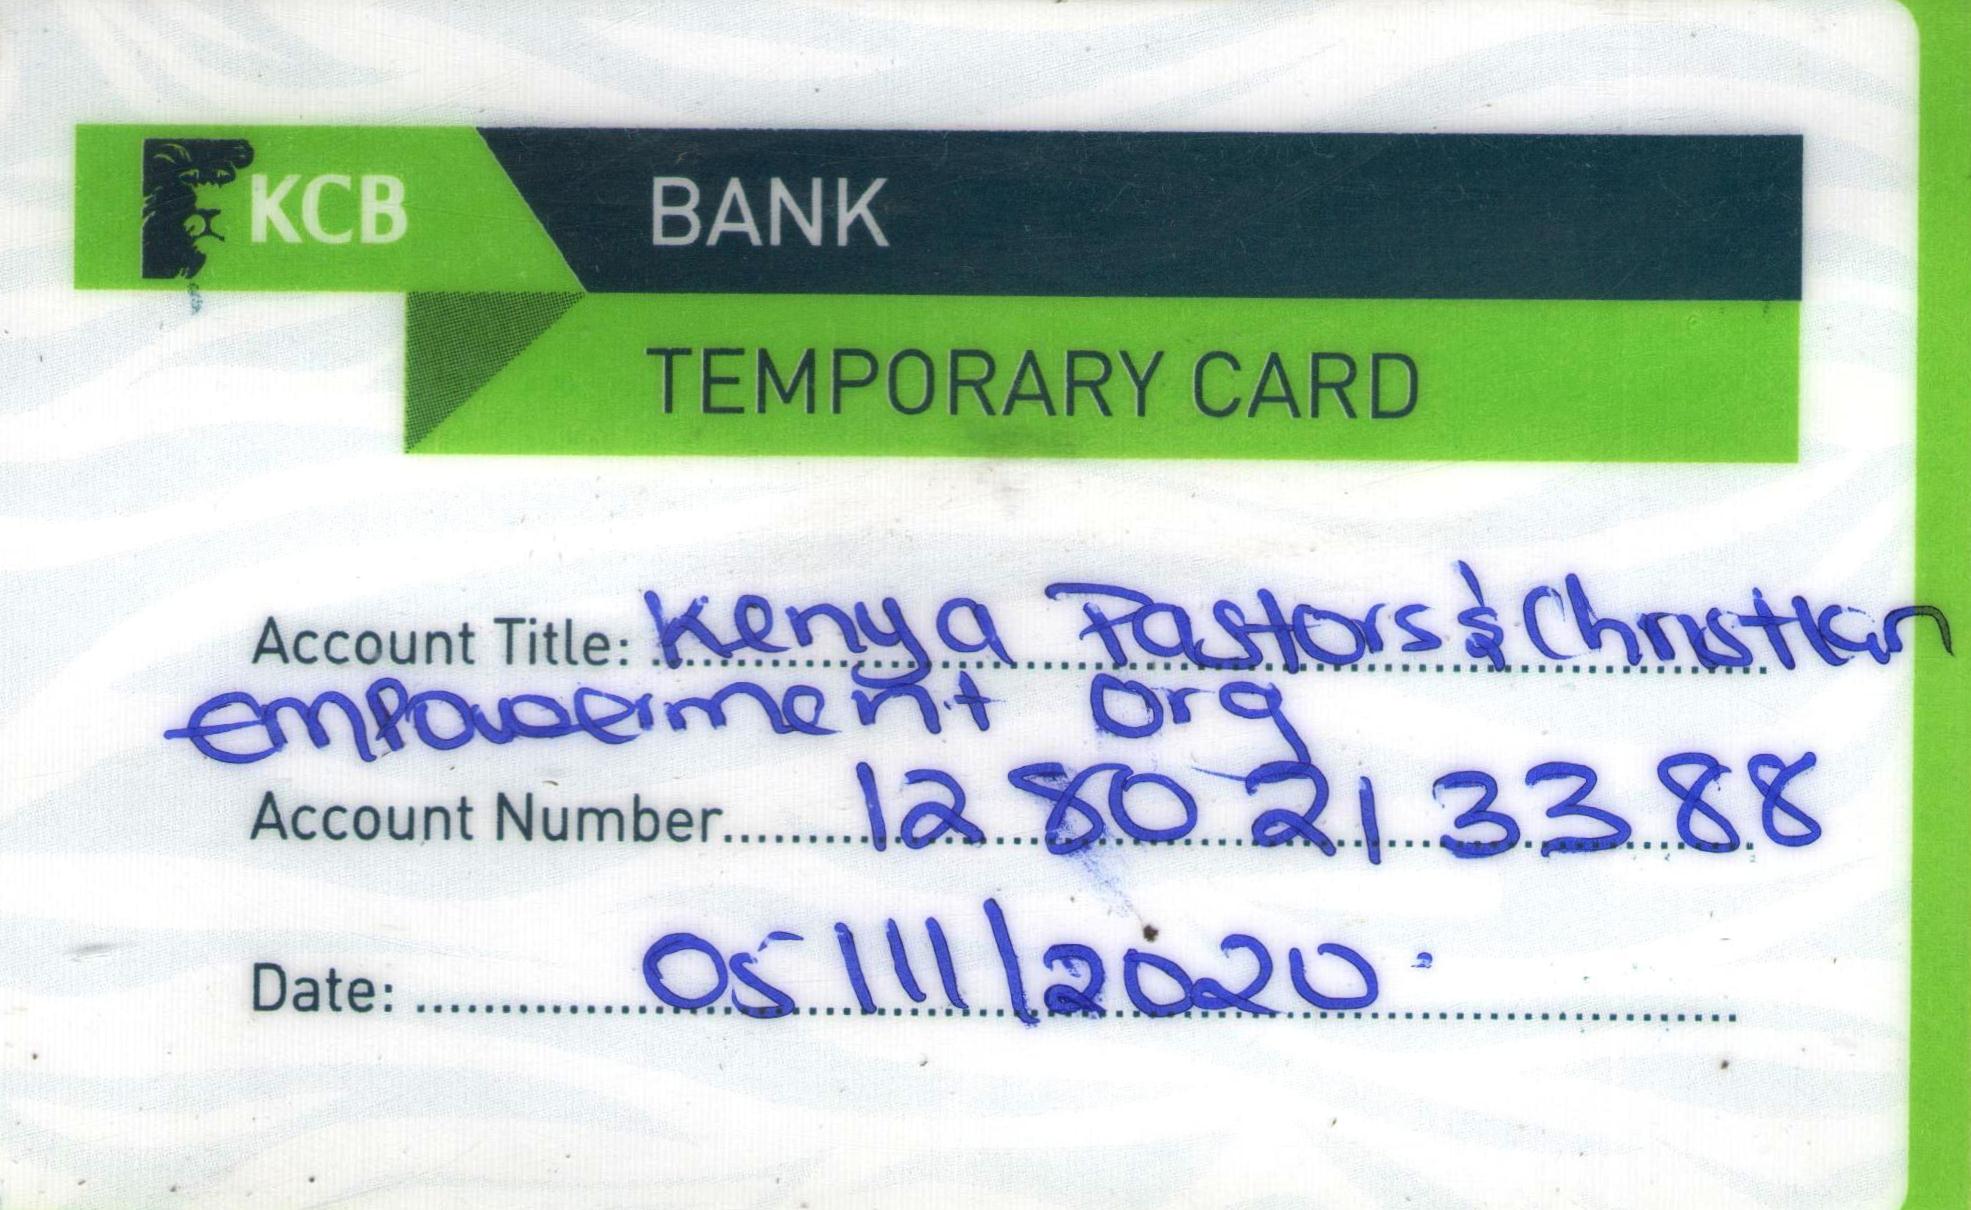 KCB BANK
TEMPORARY CARD
Account Title: Kenya Pastors & Christian
Empowerment Org
Account Number........ 1280213388
Date: ........ 05/11/2020